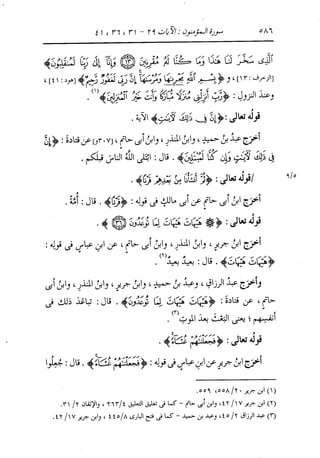 ٥٨٦ سورة المؤمنون : الآيات ٢٩ - ٣١ ، ٣٦ ، ٤١
الَّذِى سَخَّرَ لَنَا هَٰذَا وَمَا كُنَّا لَهُۥ مُقْرِنِينَ ﴿١٣﴾ وَإِنَّآ إِلَىٰ رَبِّنَا لَمُنقَلِبُونَ﴾
[الزخرف: ١٣] ، و ﴿بِسْمِ ٱللَّهِ مَجْر۪ىٰهَا وَمُرْسَىٰهَآ إِنَّ رَبِّى لَغَفُورٌ رَّحِيمٌ﴾ [هود: ٤١] ،
وعندَ النزولِ : ﴿رَّبِّ أَنزِلْنِى مُنزَلًا مُّبَارَكًا وَأَنتَ خَيْرُ ٱلْمُنزِلِينَ﴾(١).
قولُه تعالى : ﴿إِنَّ فِى ذَٰلِكَ لَءَايَٰتٍ﴾ الآية .
أخرَج عبدُ بنُ حميدٍ ، وابنُ المنذرِ ، وابنُ أبى حاتمٍ ، [٣٠٧و] عن قتادةَ : ﴿إِنَّ
فِى ذَٰلِكَ لَءَايَٰتٍ وَإِن كُنَّا لَمُبْتَلِينَ﴾ . قال : ابتلى اللهُ الناسَ قبلَكم .
٩/٥ /قولُه تعالى : ﴿ثُمَّ أَنشَأْنَا مِنۢ بَعْدِهِمْ قَرْنًا﴾ .
أخرَج ابنُ أبى حاتمٍ عن أبى مالكٍ فى قولِه : ﴿قَرْنًا﴾ . قال : أُمَّةً .
قولُه تعالى : ﴿هَيْهَاتَ هَيْهَاتَ لِمَا تُوعَدُونَ ﴿٣٦﴾﴾ .
أخرَج ابنُ جريرٍ ، وابنُ المنذرِ ، وابنُ أبى حاتمٍ ، عن ابنِ عباسٍ فى قولِه :
﴿هَيْهَاتَ هَيْهَاتَ﴾ . قال : بعيدٌ بعيدٌ(٢) .
وأخرَج عبدُ الرزاقِ ، وعبدُ بنُ حميدٍ ، وابنُ جريرٍ ، وابنُ المنذرِ ، وابنُ أبى
حاتمٍ ، عن قتادةَ : ﴿هَيْهَاتَ هَيْهَاتَ لِمَا تُوعَدُونَ﴾ . قال : تباعَد ذلك فى
أنفسِهم ؛ يعنى البَعْثَ بعدَ الموتِ(٣) .
قولُه تعالى : ﴿فَجَعَلْنَٰهُمْ غُثَآءً﴾ .
أخرَج ابنُ جريرٍ عن ابنِ عباسٍ فى قولِه : ﴿فَجَعَلْنَٰهُمْ غُثَآءً﴾ . قال : جُعِلوا
(١) ابن جرير ٢٠/ ٥٥٨، ٥٥٩.
(٢) ابن جرير ١٧/ ٤٢، وابن أبى حاتم - كما فى تغليق التعليق ٢٦٣/٤ ، والإتقان ٢/ ٣١.
(٣) عبد الرزاق ٢/ ٤٥، وعبد بن حميد - كما فى فتح البارى ٤٤٥/٨ ، وابن جرير ١٧/ ٤٢.